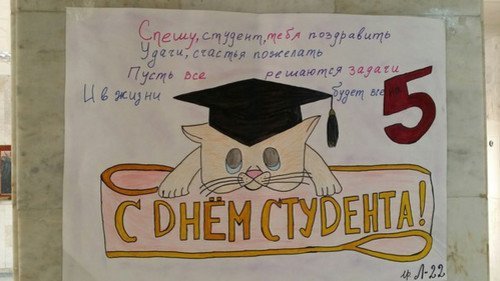 Спешу, студент, тебя поздравить
Удачи, счастья пожелать
Пусть все решаются задачи
И в жизни будет все на 5
С ДНЁМ СТУДЕНТА!
гр. Л-22